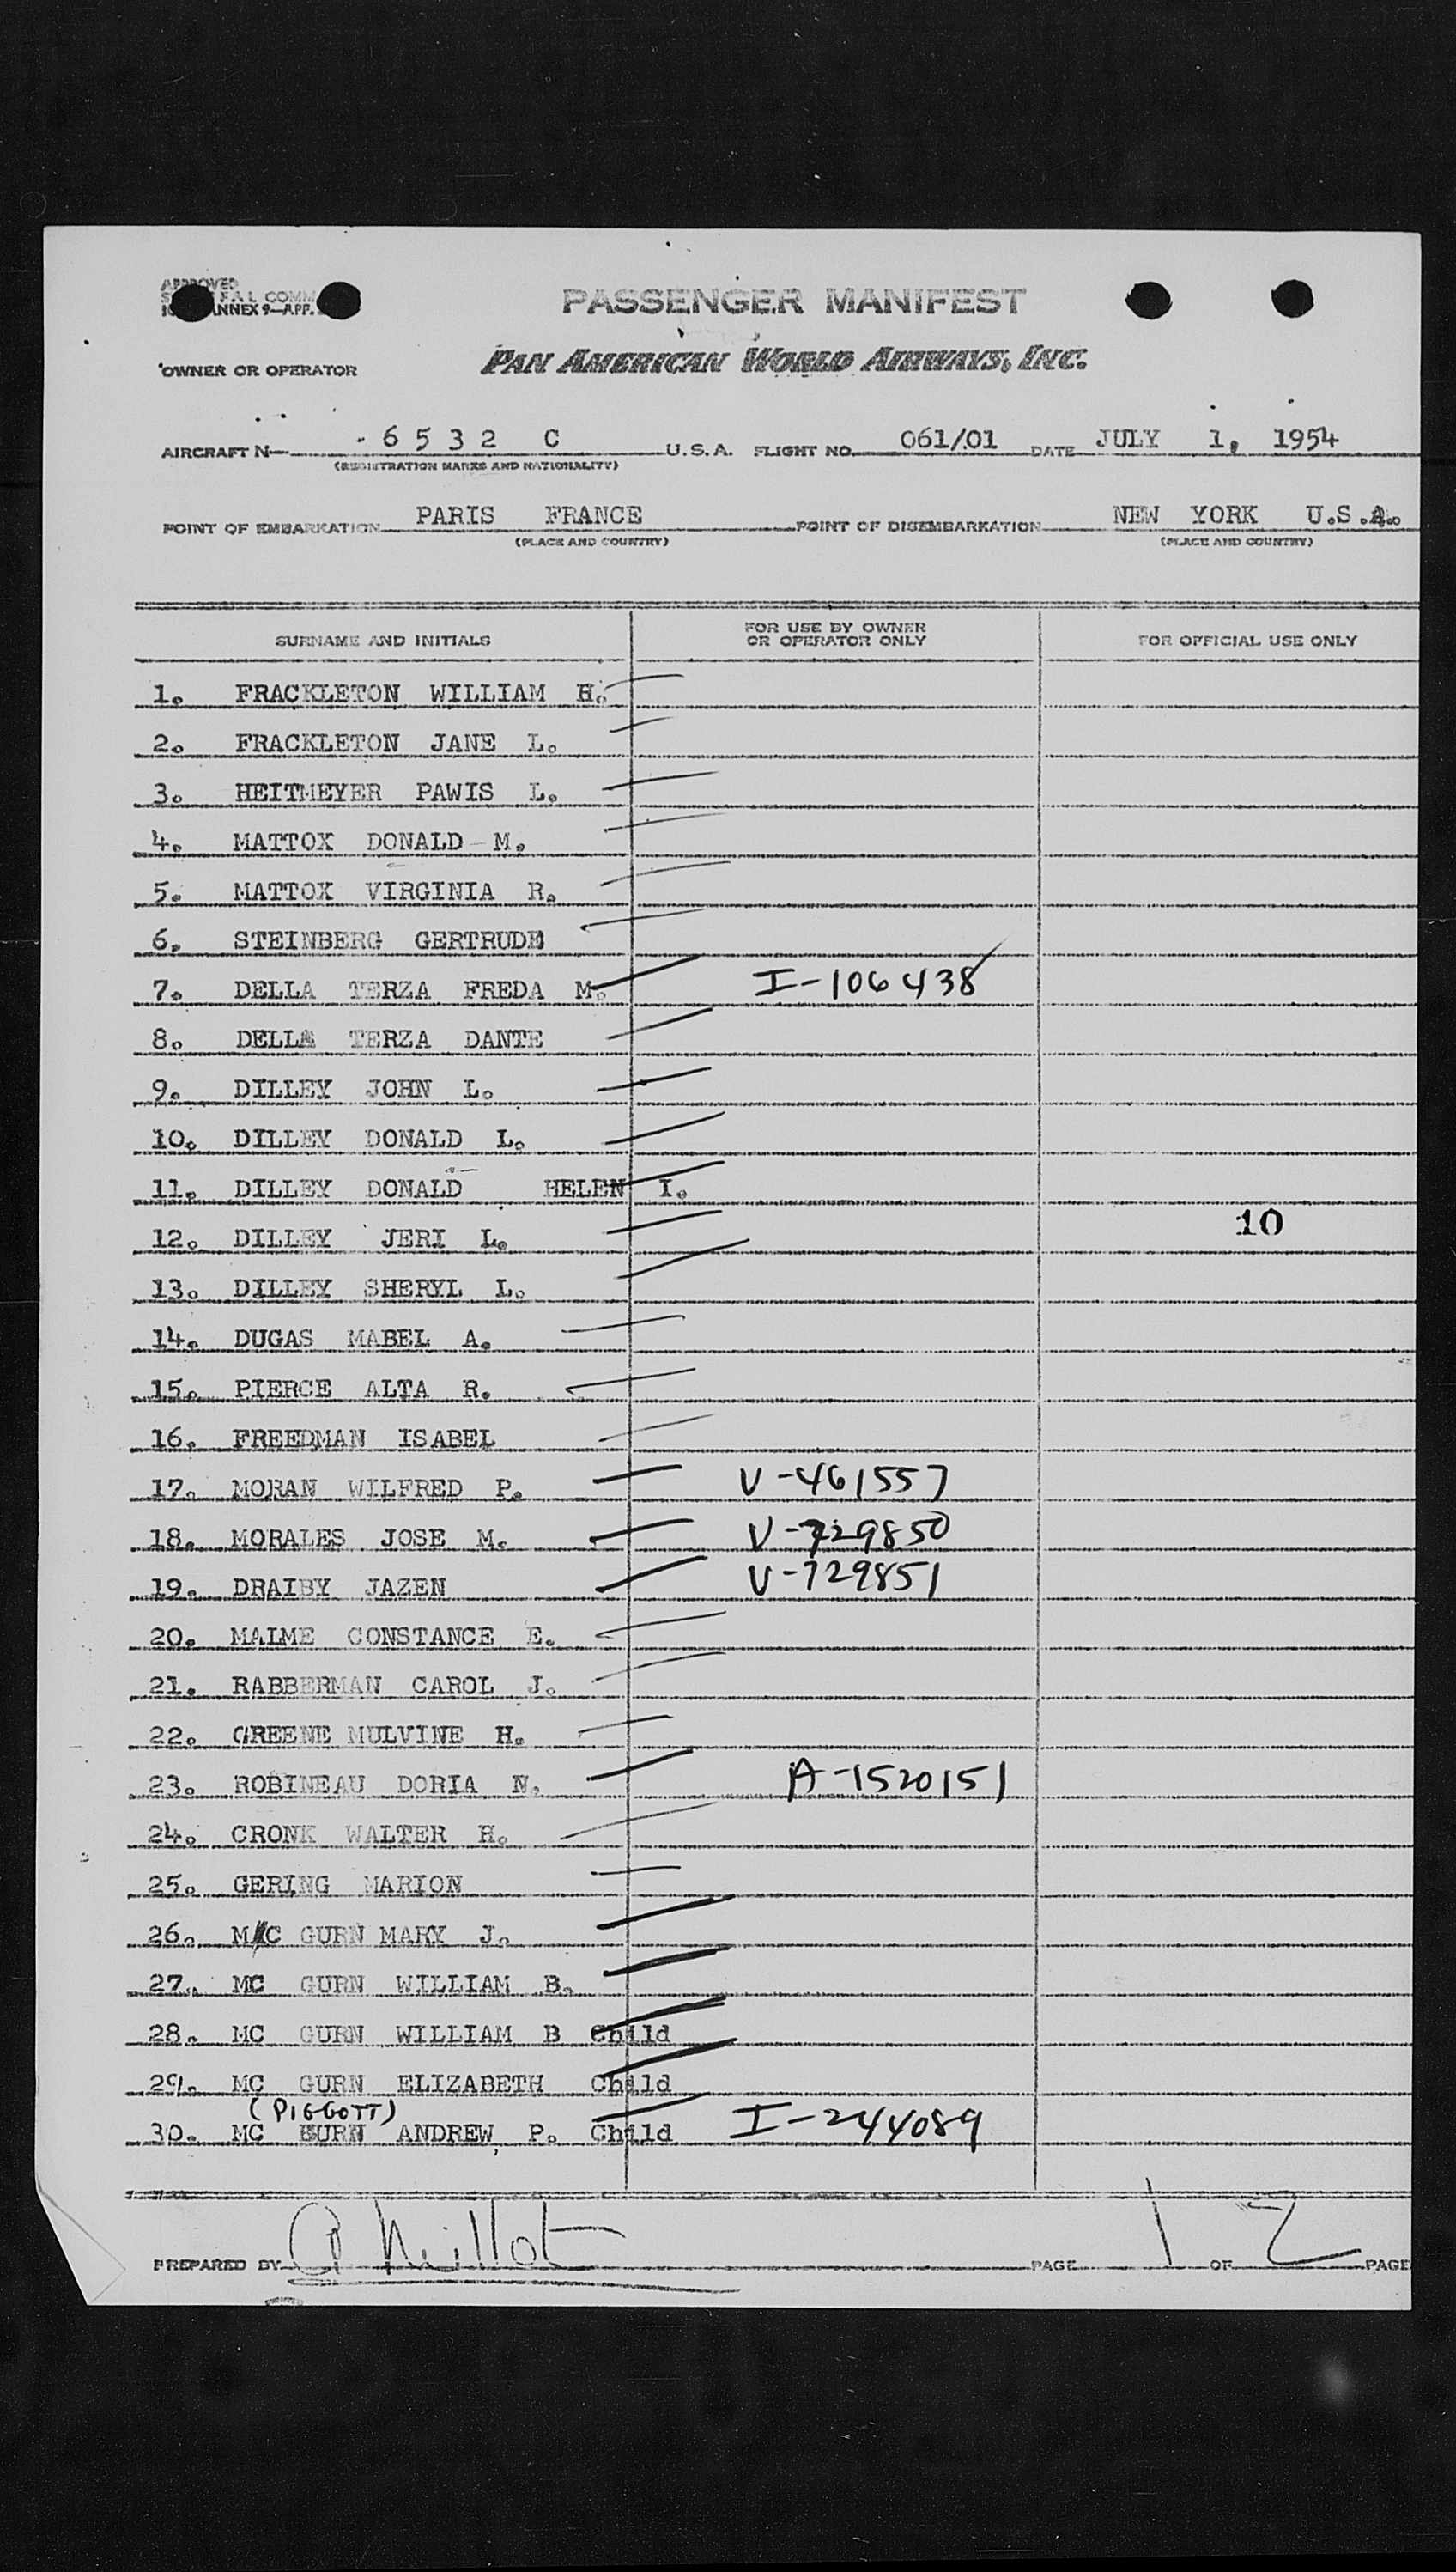 APPROVED
F A L COMM
ANNEX 9—APP.
PASSENGER MANIFEST
OWNER OR OPERATOR
PAN AMERICAN WORLD AIRWAYS, INC.
AIRCRAFT N— 6 5 3 2 C U.S.A. FLIGHT NO. 061/01 DATE JULY 1, 1954
(REGISTRATION MARKS AND NATIONALITY)
POINT OF EMBARKATION PARIS FRANCE POINT OF DISEMBARKATION NEW YORK U.S.A.
(PLACE AND COUNTRY) (PLACE AND COUNTRY)
SURNAME AND INITIALS FOR USE BY OWNER OR OPERATOR ONLY FOR OFFICIAL USE ONLY
1. FRACKLETON WILLIAM H.
2. FRACKLETON JANE L.
3. HEITMEYER PAWIS L.
4. MATTOX DONALD M.
5. MATTOX VIRGINIA R.
6. STEINBERG GERTRUDE
7. DELLA TERZA FREDA M. I-106438
8. DELLA TERZA DANTE
9. DILLEY JOHN L.
10. DILLEY DONALD L.
11. DILLEY DONALD HELEN I.
12. DILLEY JERI L. 10
13. DILLEY SHERYL L.
14. DUGAS MABEL A.
15. PIERCE ALTA R.
16. FREEDMAN ISABEL
17. MORAN WILFRED P. V-461557
18. MORALES JOSE M. V-729850
19. DRAIBY JAZEN V-729851
20. MALME CONSTANCE E.
21. RABBERMAN CAROL J.
22. GREENE MULVINE H.
23. ROBINEAU DORIA N. A-1520151
24. CRONK WALTER H.
25. GERING MARION
26. MC GURN MARY J.
27. MC GURN WILLIAM B.
28. MC GURN WILLIAM B Child
29. MC GURN ELIZABETH Child
(PIGGOTT)
30. MC GURN ANDREW P. Child I-244089
PREPARED BY PAGE 1 OF 2 PAGE